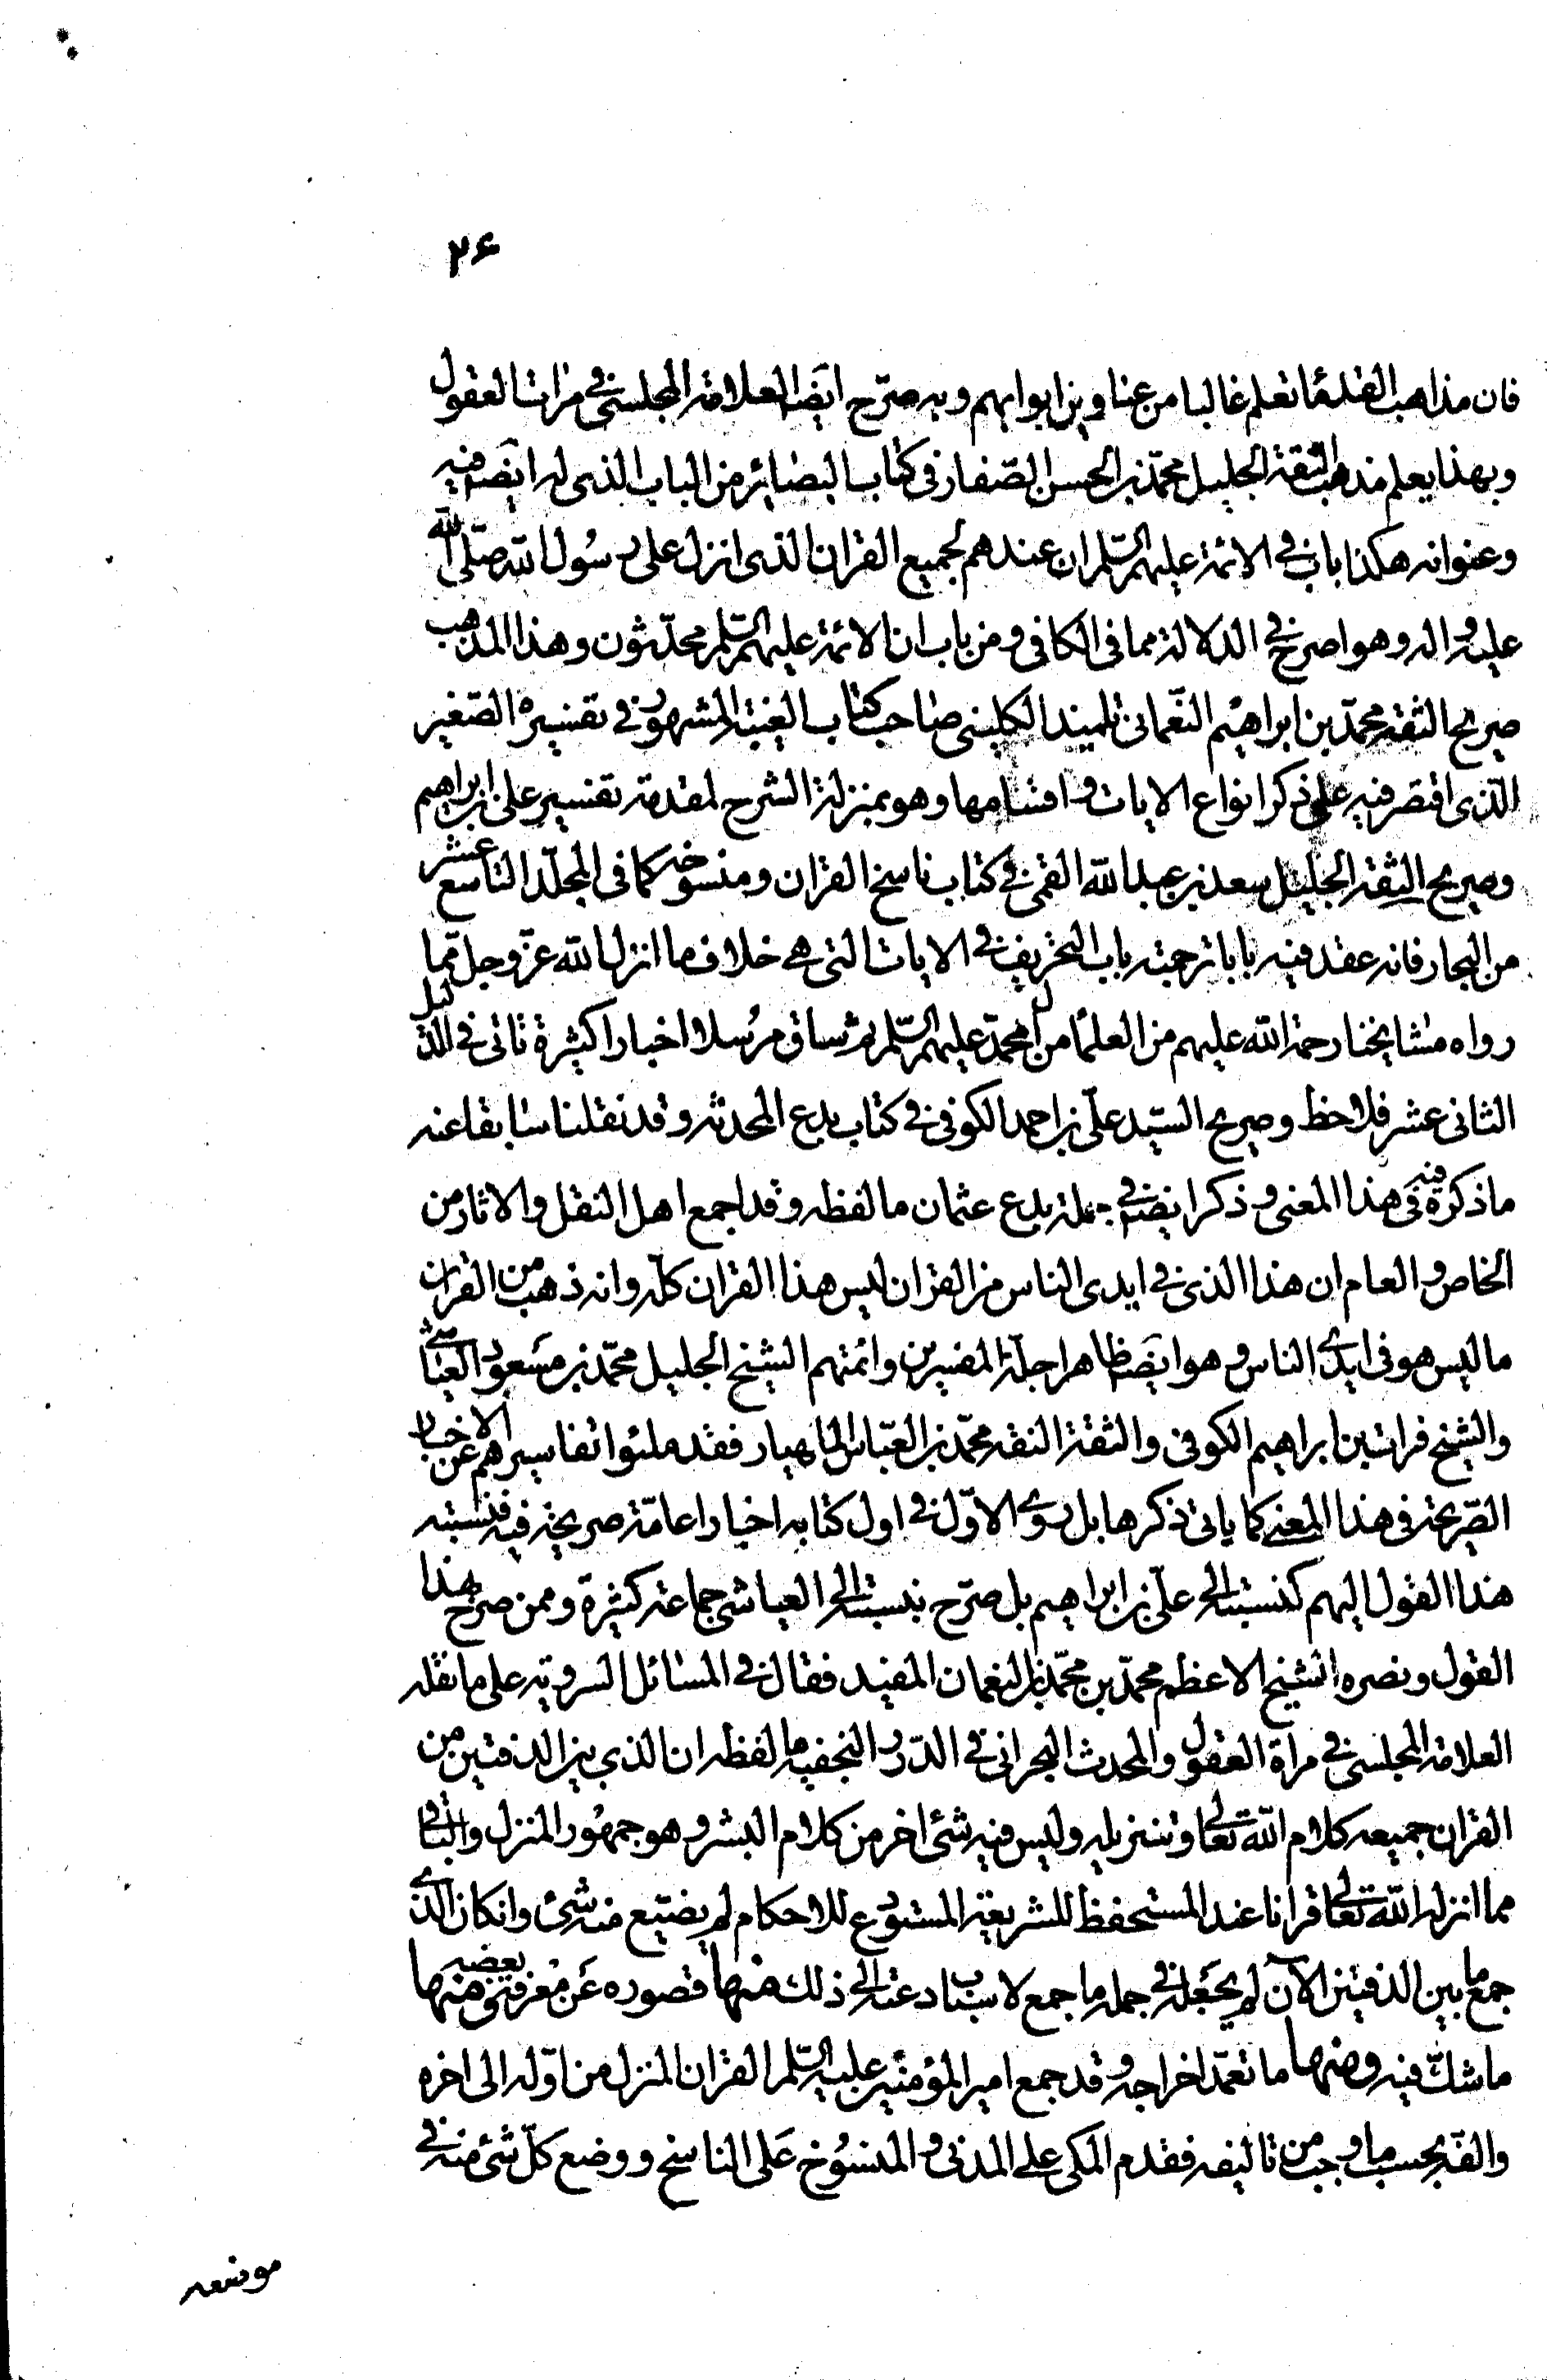 ۲۶
فان مذاهب القدماء تعلم غالبا من عناوين ابوابهم وبه صرّح ايضا العلامة المجلسي في مرات العقول
وبهذا يعلم مذهب الثقة الجليل محمّد بن الحسن الصّفار في كتاب البصائر من الباب الذي له ايضا فيه
وعنوانه هكذا باب في الائمة عليهم السّلم ان عندهم لجميع القران الذي انزل على رسول الله صلّى الله
عليه واله وهو اصرح في الدلالة مما في الكافي ومن باب ان الائمة عليهم السّلم محدّثون وهذا المذهب
صريح الثقة محمّد بن ابراهيم النّعماني تلميذ الكليني صاحب كتاب الغيبة المشهور في تفسيره الصّغير
الّذي اقتصر فيه على ذكر انواع الايات واقسامها وهو بمنزلة الشرح لمقدمة تفسير علي بن ابراهيم
وصريح الثقة الجليل سعد بن عبد الله القمي في كتاب ناسخ القران ومنسوخه كما في المجلّد التاسع عشر
من البحار فانه عقد فيه بابا ترجمته باب التحريف في الايات التي هي خلاف ما انزل الله عزّ وجل ممّا
رواه مشايخنا رحمة الله عليهم من العلماء من ال محمّد عليهم السّلم ثم ساق مرسلا اخبارا كثيرة تاتي في الدّليل
الثاني عشر فلاحظ وصريح السّيد علّي بن احمد الكوفي في كتاب بدع المحدثة وقد نقلنا سابقا عنه
ما ذكره فيه في هذا المعنى وذكر ايضا في جملة بدع عثمان ما لفظه وقد اجمع اهل النقل والاثار من
الخاص والعام ان هذا الذي في ايدي الناس من القران ليس هذا القران كلّه وانه ذهب من القران
ما ليس هو في ايدي الناس وهو ايضا ظاهر اجلّة المفسرين وائمتهم الشيخ الجليل محمّد بن مسعود العيّاشي
والشيخ فرات بن ابراهيم الكوفي والثقة النقه محمّد بن العبّاس الماهيار فقد ملئوا تفاسيرهم عن الاخبار
الصّريحة في هذا المعنى كما ياتي ذكرها بل روى الاوّل في اول كتابه اخبارا عامّة صريحة فيه فنسبته
هذا القول اليهم كنسبته الى علّي بن ابراهيم بل صرّح بنسبته الى العياشي جماعة كثيرة وممن صرح بهذا
القول ونصره الشيخ الاعظم محمّد بن محمّد بن النعمان المفيد فقال في المسائل السروية على ما نقله
العلامة المجلسي في مرآة العقول والمحدث البحراني في الدّرر النجفية ما لفظه ان الذي بين الدفتين من
القران جميعه كلام الله تعالى وتنزيله وليس فيه شئ اخر من كلام البشر وهو جمهور المنزل والباقي
مما انزله الله تعالى قرانا عند المستحفظ للشريعة المستودع للاحكام لم يضيّع منه شئ وان كان الذي
جمع ما بين الدفتين الآن لم يجعله في جملة ما جمع لاسباب دعته الى ذلك منها قصوره عن معرفة بعضه ومنها
ما شكّ فيه ومنها ما تعمّد اخراجه وقد جمع امير المؤمنين عليه السّلم القران المنزل من اوّله الى اخره
والفه بحسب ما وجب من تاليفه فقدم المكي على المدني والمنسوخ على الناسخ ووضع كلّ شئ منه في
موضعه